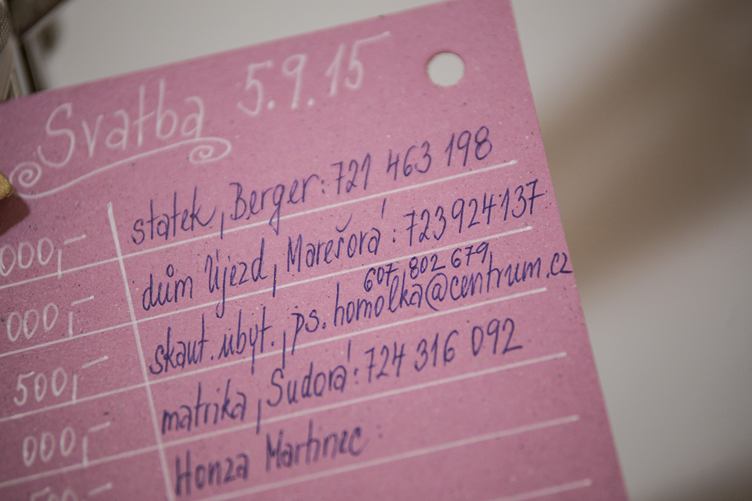 Svatba 5.9.15
000,- statek, Berger: 721 463 198
000,- dům Újezd, Marešová: 723924137
607 802 679
500,- skaut. ubyt., ps.homolka@centrum.cz
000,- matrika, Sudová: 724 316 092
Honza Martinec: